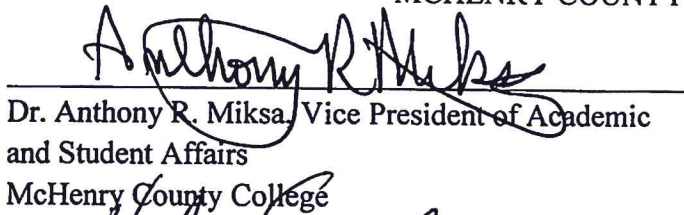 MCHENRY COUNTY
Anthony R Miksa
Dr. Anthony R. Miksa, Vice President of Academic
and Student Affairs
McHenry County College